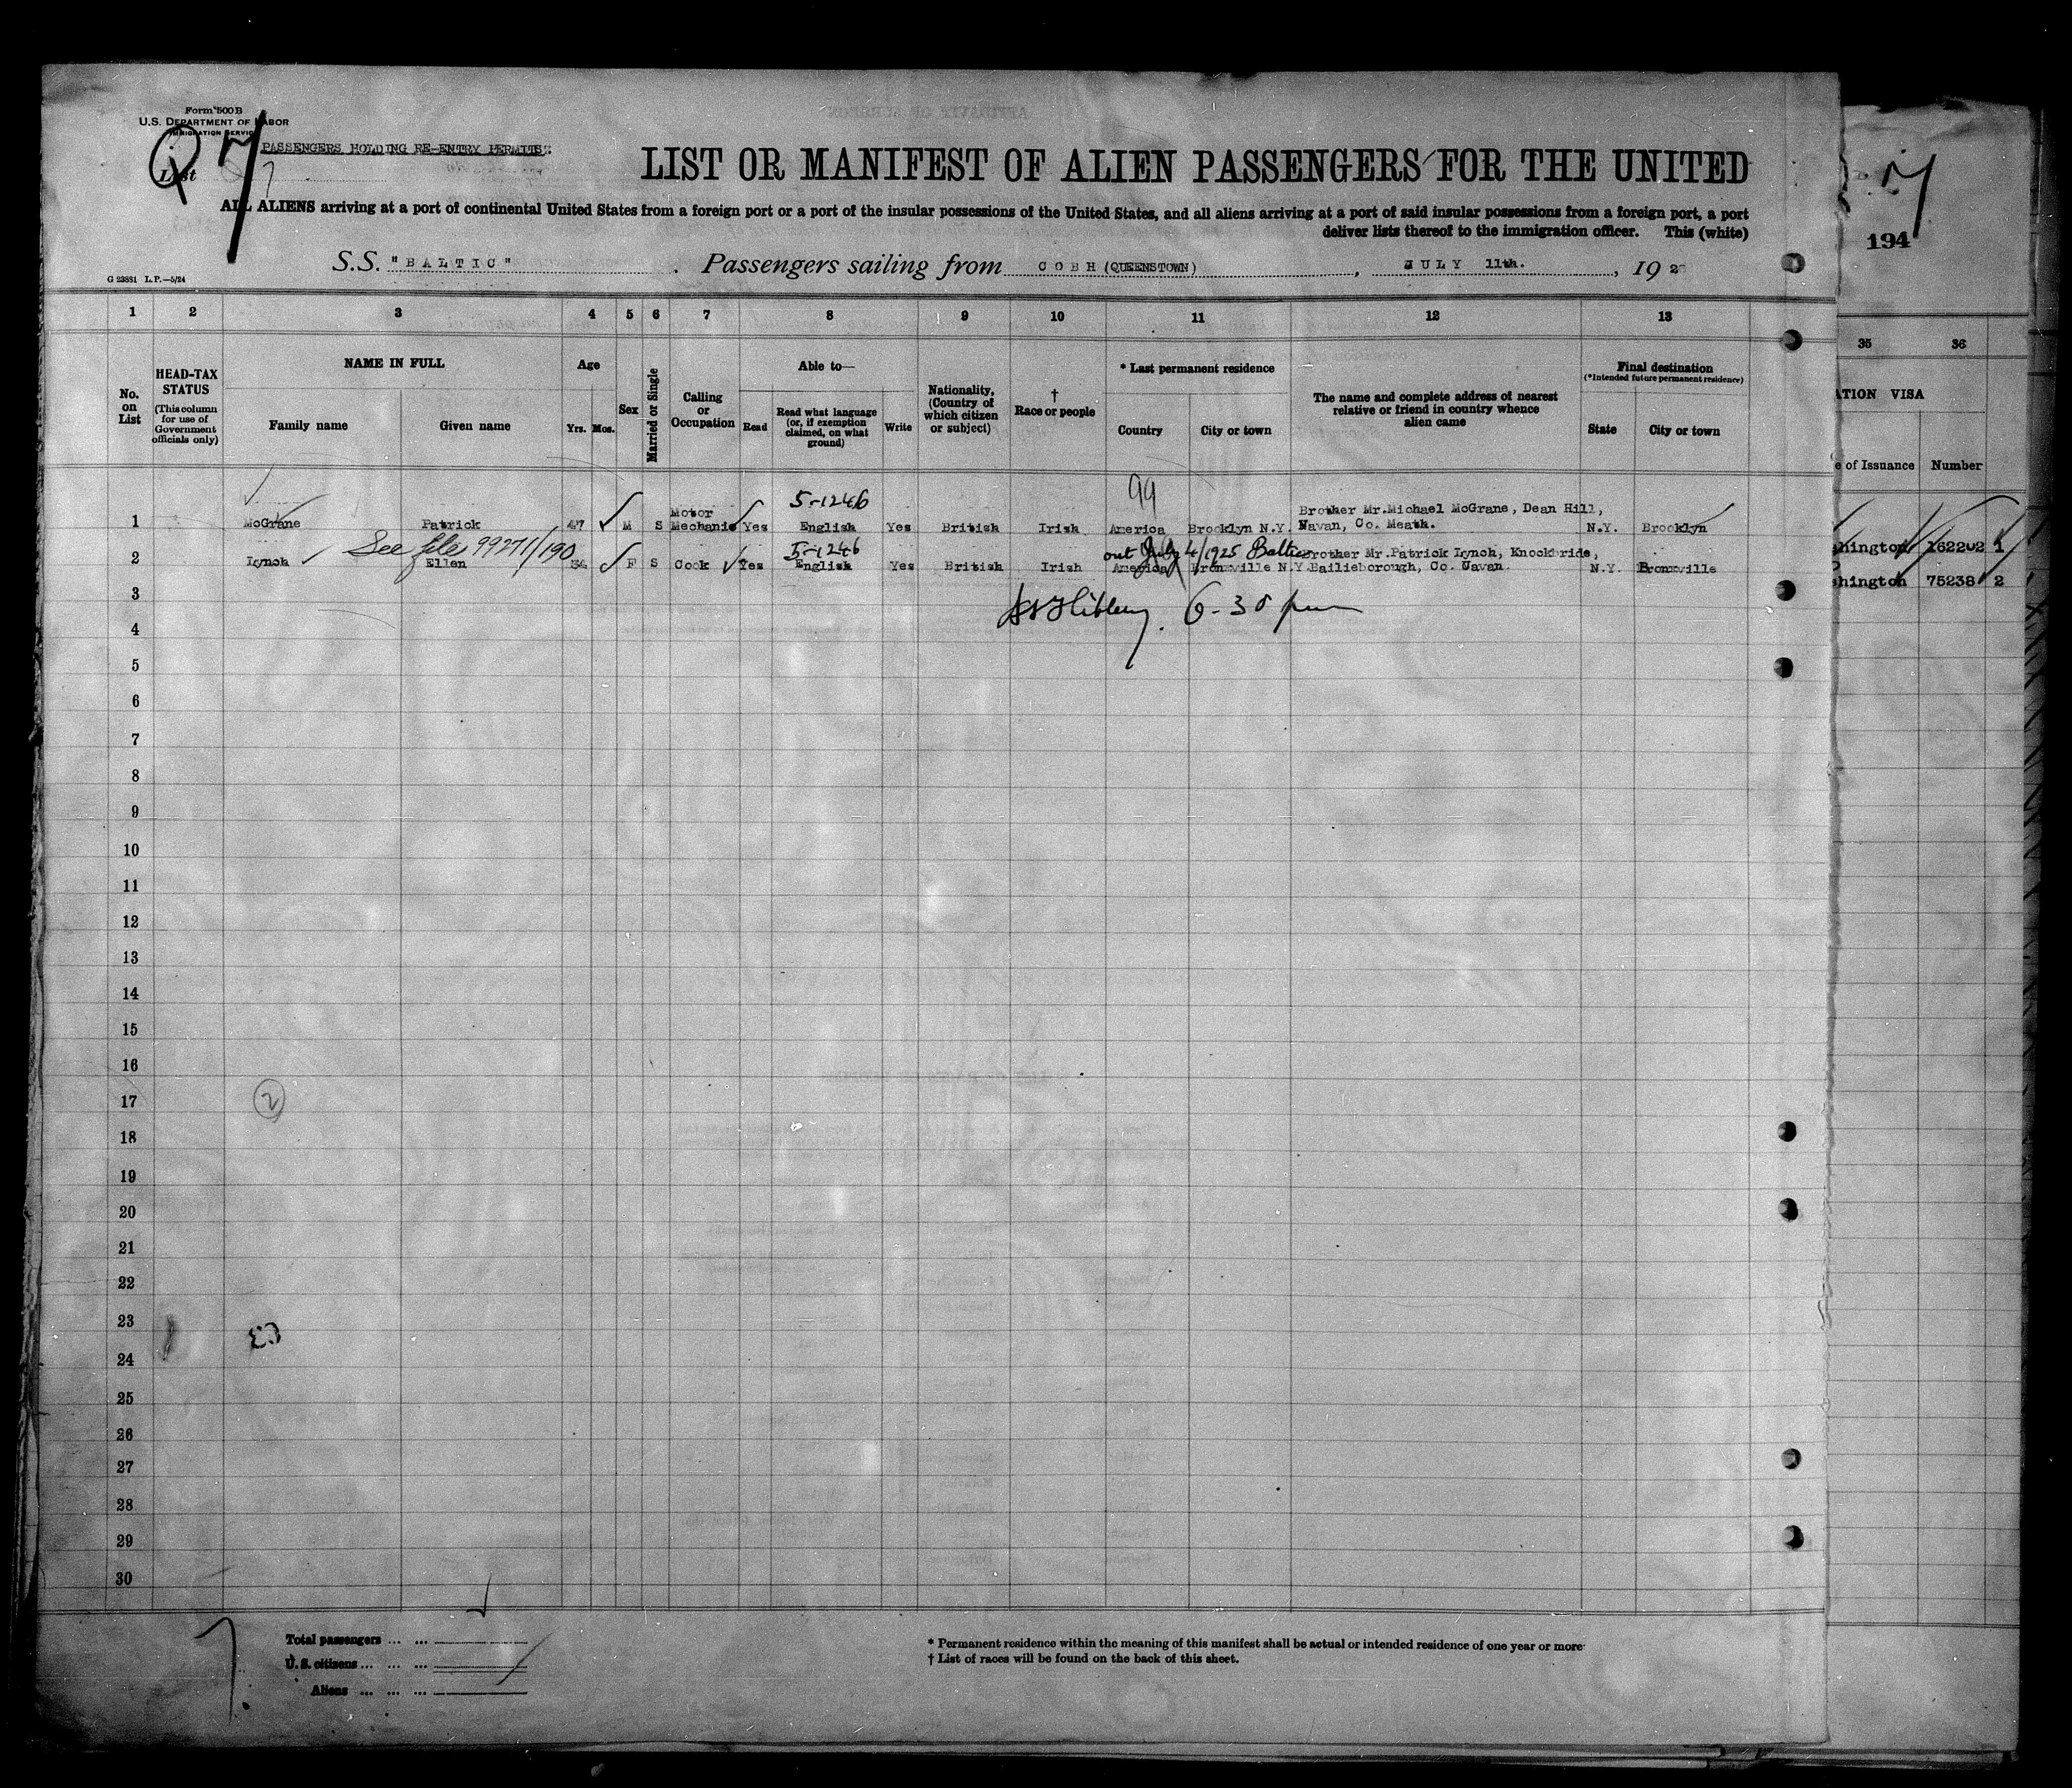 Form 500 B
U.S. DEPARTMENT OF LABOR
IMMIGRATION SERVICE
PASSENGERS HOLDING RE-ENTRY PERMITS.
List
7
LIST OR MANIFEST OF ALIEN PASSENGERS FOR THE UNITED
ALL ALIENS arriving at a port of continental United States from a foreign port or a port of the insular possessions of the United States, and all aliens arriving at a port of said insular possessions from a foreign port, a port
deliver lists thereof to the immigration officer. This (white)
194
S.S. "BALTIC" . Passengers sailing from COBH (QUEENSTOWN), JULY 11th., 192
G 23881 L.P.—5/24
1 2 3 4 5 6 7 8 9 10 11 12 13 35 36
No. on List
HEAD-TAX STATUS
(This column for use of Government officials only)
NAME IN FULL
Family name Given name
Age
Yrs. Mos.
Sex
Married or Single
Calling or Occupation
Able to—
Read
Read what language (or, if exemption claimed, on what ground)
Write
Nationality, (Country of which citizen or subject)
† Race or people
* Last permanent residence
Country City or town
The name and complete address of nearest relative or friend in country whence alien came
Final destination
(*Intended future permanent residence)
State City or town
ATION VISA
e of Issuance Number
5-1246 99
1 McGrane Patrick 47 M S Motor Mechanic Yes English Yes British Irish America Brooklyn N.Y. Brother Mr.Michael McGrane, Dean Hill, Navan, Co. Meath. N.Y. Brooklyn
hington 162202 1
See file 99271/190 5-1246 out July 4/1925 Baltic
2 Lynch Ellen 34 F S Cook Yes English Yes British Irish America Bronxville N.Y. Brother Mr.Patrick Lynch, Knockbride, Bailieborough, Co. Cavan. N.Y. Bronxville
hington 75238 2
3
6-30 pm
4
5
6
7
8
9
10
11
12
13
14
15
16
17
2
18
19
20
21
22
23
24
25
26
27
28
29
30
Total passengers ... ...
U.S. citizens ... ... ...
Aliens ... ... ...
* Permanent residence within the meaning of this manifest shall be actual or intended residence of one year or more
† List of races will be found on the back of this sheet.